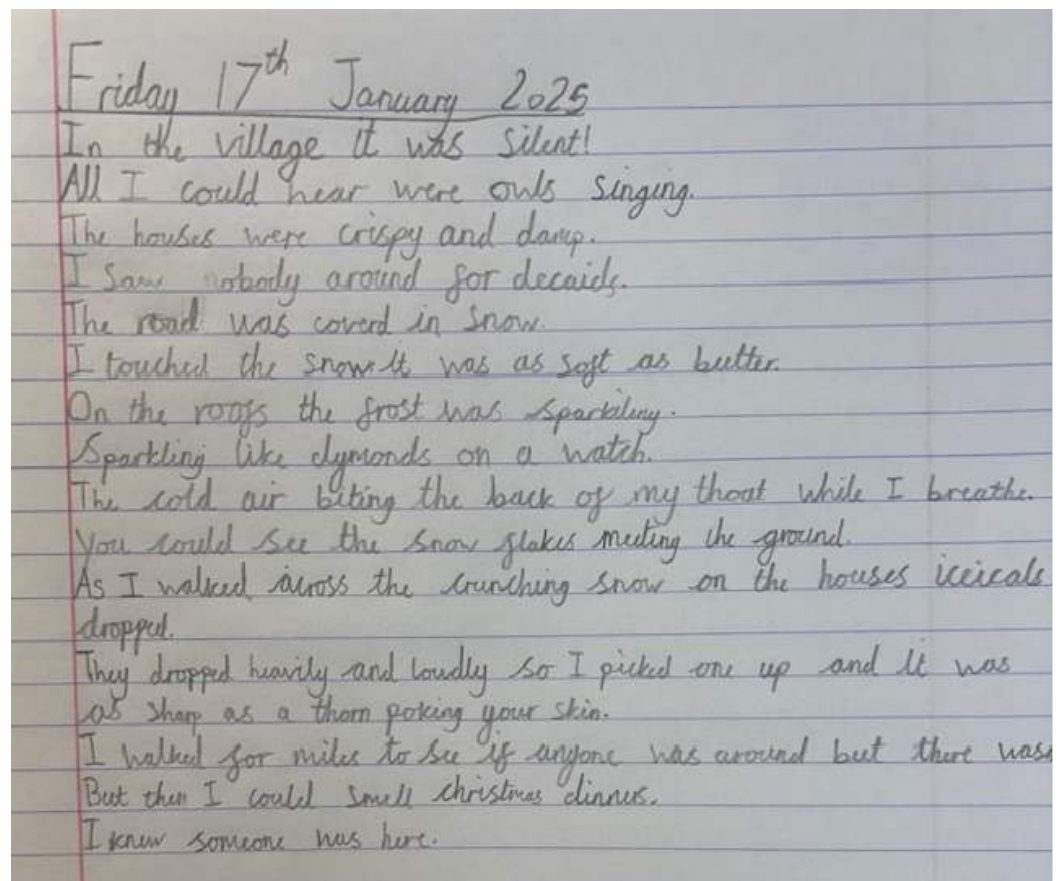 Friday 17th January 2025
In the village it was silent!
All I could hear were owls singing.
The houses were crispy and damp.
I saw nobody around for decaids.
The road was coverd in snow.
I touched the snow it was as soft as butter.
On the roofs the frost was sparkling.
Sparkling like dymonds on a watch.
The cold air biting the back of my thoat while I breathe.
You could see the snow flakes meeting the ground.
As I walked across the crunching snow on the houses iceicals
dropped.
They dropped heavily and loudly so I picked one up and it was
as sharp as a thorn poking your skin.
I walked for miles to see if anyone was around but there was
But then I could smell christmas dinners.
I knew someone was here.